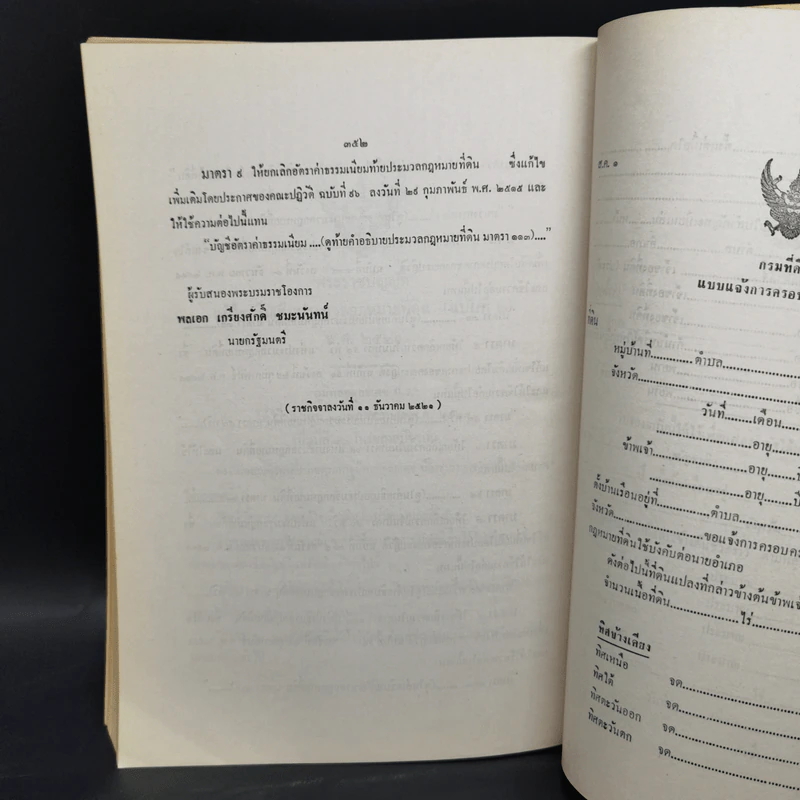 ๓๕๒
มาตรา ๙ ให้ยกเลิกอัตราค่าธรรมเนียมท้ายประมวลกฎหมายที่ดิน ซึ่งแก้ไข
เพิ่มเติมโดยประกาศของคณะปฏิวัติ ฉบับที่ ๙๖ ลงวันที่ ๒๙ กุมภาพันธ์ พ.ศ. ๒๕๑๕ และ
ให้ใช้ความต่อไปนี้แทน
“บัญชีอัตราค่าธรรมเนียม ....(ดูท้ายคำอธิบายประมวลกฎหมายที่ดิน มาตรา ๑๑๓)....”
ผู้รับสนองพระบรมราชโองการ
พลเอก เกรียงศักดิ์ ชมะนันทน์
นายกรัฐมนตรี
(ราชกิจจาลงวันที่ ๑๑ ธันวาคม ๒๕๒๑)
ส.ค. ๑
กรมที่ดิ
แบบแจ้งการครอบ
ที่ดิน
หมู่บ้านที่............ตำบล............
จังหวัด............
วันที่.......เดือน............
............อายุ............
ข้าพเจ้า............อายุ............
............อายุ............ปี
ตั้งบ้านเรือนอยู่ที่............ตำบล............
จังหวัด............ขอแจ้งการครอบคร
กฎหมายที่ดินใช้บังคับต่อนายอำเภอ
ดังต่อไปนี้ที่ดินแปลงที่กล่าวข้างต้นข้าพเจ้
จำนวนเนื้อที่ดิน............ไร่............
ทิศข้างเคียง
ทิศเหนือ จด............
ทิศใต้ จด............
ทิศตะวันออก จด............
ทิศตะวันตก จด............